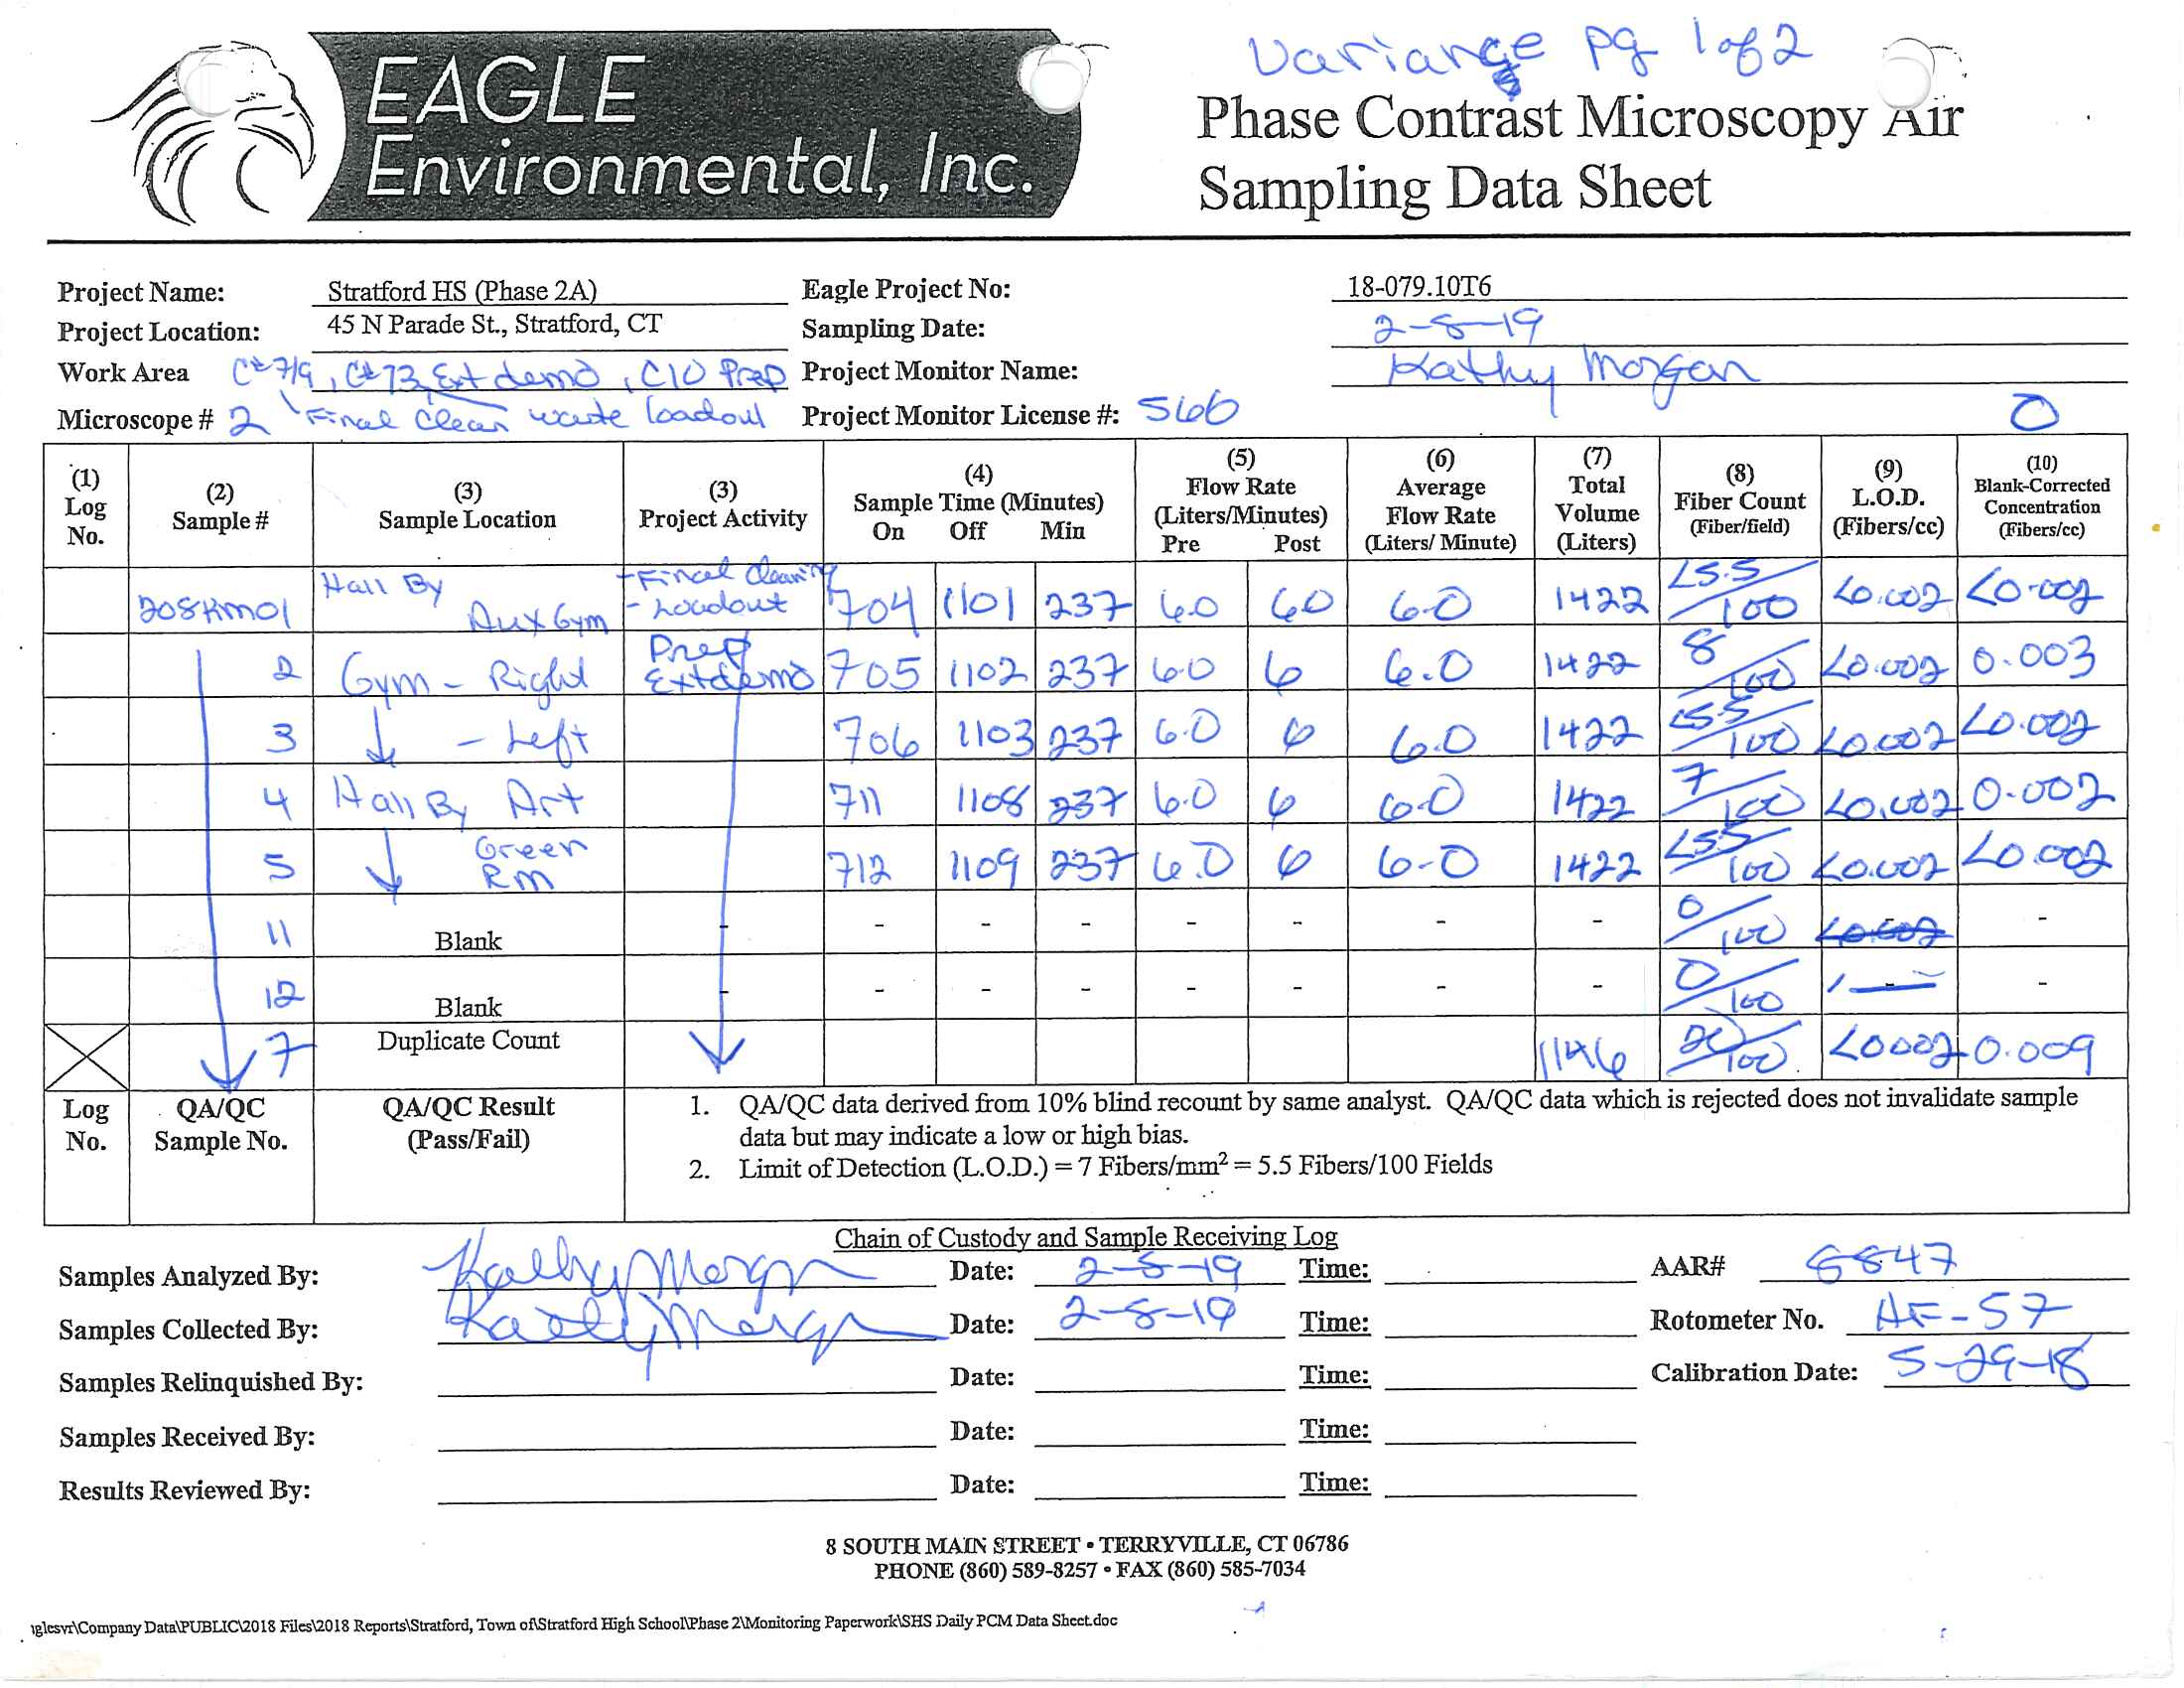 Variance pg 1 of 2
EAGLE
Environmental, Inc.
Phase Contrast Microscopy Air
Sampling Data Sheet
Project Name: Stratford HS (Phase 2A) Eagle Project No: 18-079.10T6
Project Location: 45 N Parade St., Stratford, CT Sampling Date: 2-8-19
Work Area C#7/9, C#73 Ext demo, C10 Prep Project Monitor Name: Kathy Morgan
Microscope # 2 Final Clean waste loadout Project Monitor License #: 566 0
(1) Log No. (2) Sample # (3) Sample Location (3) Project Activity (4) Sample Time (Minutes) On Off Min (5) Flow Rate (Liters/Minutes) Pre Post (6) Average Flow Rate (Liters/ Minute) (7) Total Volume (Liters) (8) Fiber Count (Fiber/field) (9) L.O.D. (Fibers/cc) (10) Blank-Corrected Concentration (Fibers/cc)
208KM01 Hall By Aux Gym -Final Cleaning - Loadout 704 1101 237 6.0 6.0 6.0 1422 <5.5/100 <0.002 <0.002
2 Gym - Right Prep Ext demo 705 1102 237 6.0 6 6.0 1422 8/100 <0.002 0.003
3 - Left 706 1103 237 6.0 6 6.0 1422 <5.5/100 <0.002 <0.002
4 Hall By Art 711 1108 237 6.0 6 6.0 1422 7/100 <0.002 0.002
5 Green Rm 712 1109 237 6.0 6 6.0 1422 <5.5/100 <0.002 <0.002
11 Blank - - - - - - - - 0/100 <0.002 -
12 Blank - - - - - - - - 0/100 - -
7 Duplicate Count 1146 20/100 <0.002 0.009
Log No. QA/QC Sample No. QA/QC Result (Pass/Fail)
1. QA/QC data derived from 10% blind recount by same analyst. QA/QC data which is rejected does not invalidate sample
data but may indicate a low or high bias.
2. Limit of Detection (L.O.D.) = 7 Fibers/mm² = 5.5 Fibers/100 Fields
Chain of Custody and Sample Receiving Log
Samples Analyzed By: Kathy Morgan Date: 2-8-19 Time: AAR# 6847
Samples Collected By: Kathy Morgan Date: 2-8-19 Time: Rotometer No. HF-57
Samples Relinquished By: Date: Time: Calibration Date: 5-29-18
Samples Received By: Date: Time:
Results Reviewed By: Date: Time:
8 SOUTH MAIN STREET • TERRYVILLE, CT 06786
PHONE (860) 589-8257 • FAX (860) 585-7034
\glesvr\Company Data\PUBLIC\2018 Files\2018 Reports\Stratford, Town of\Stratford High School\Phase 2\Monitoring Paperwork\SHS Daily PCM Data Sheet.doc